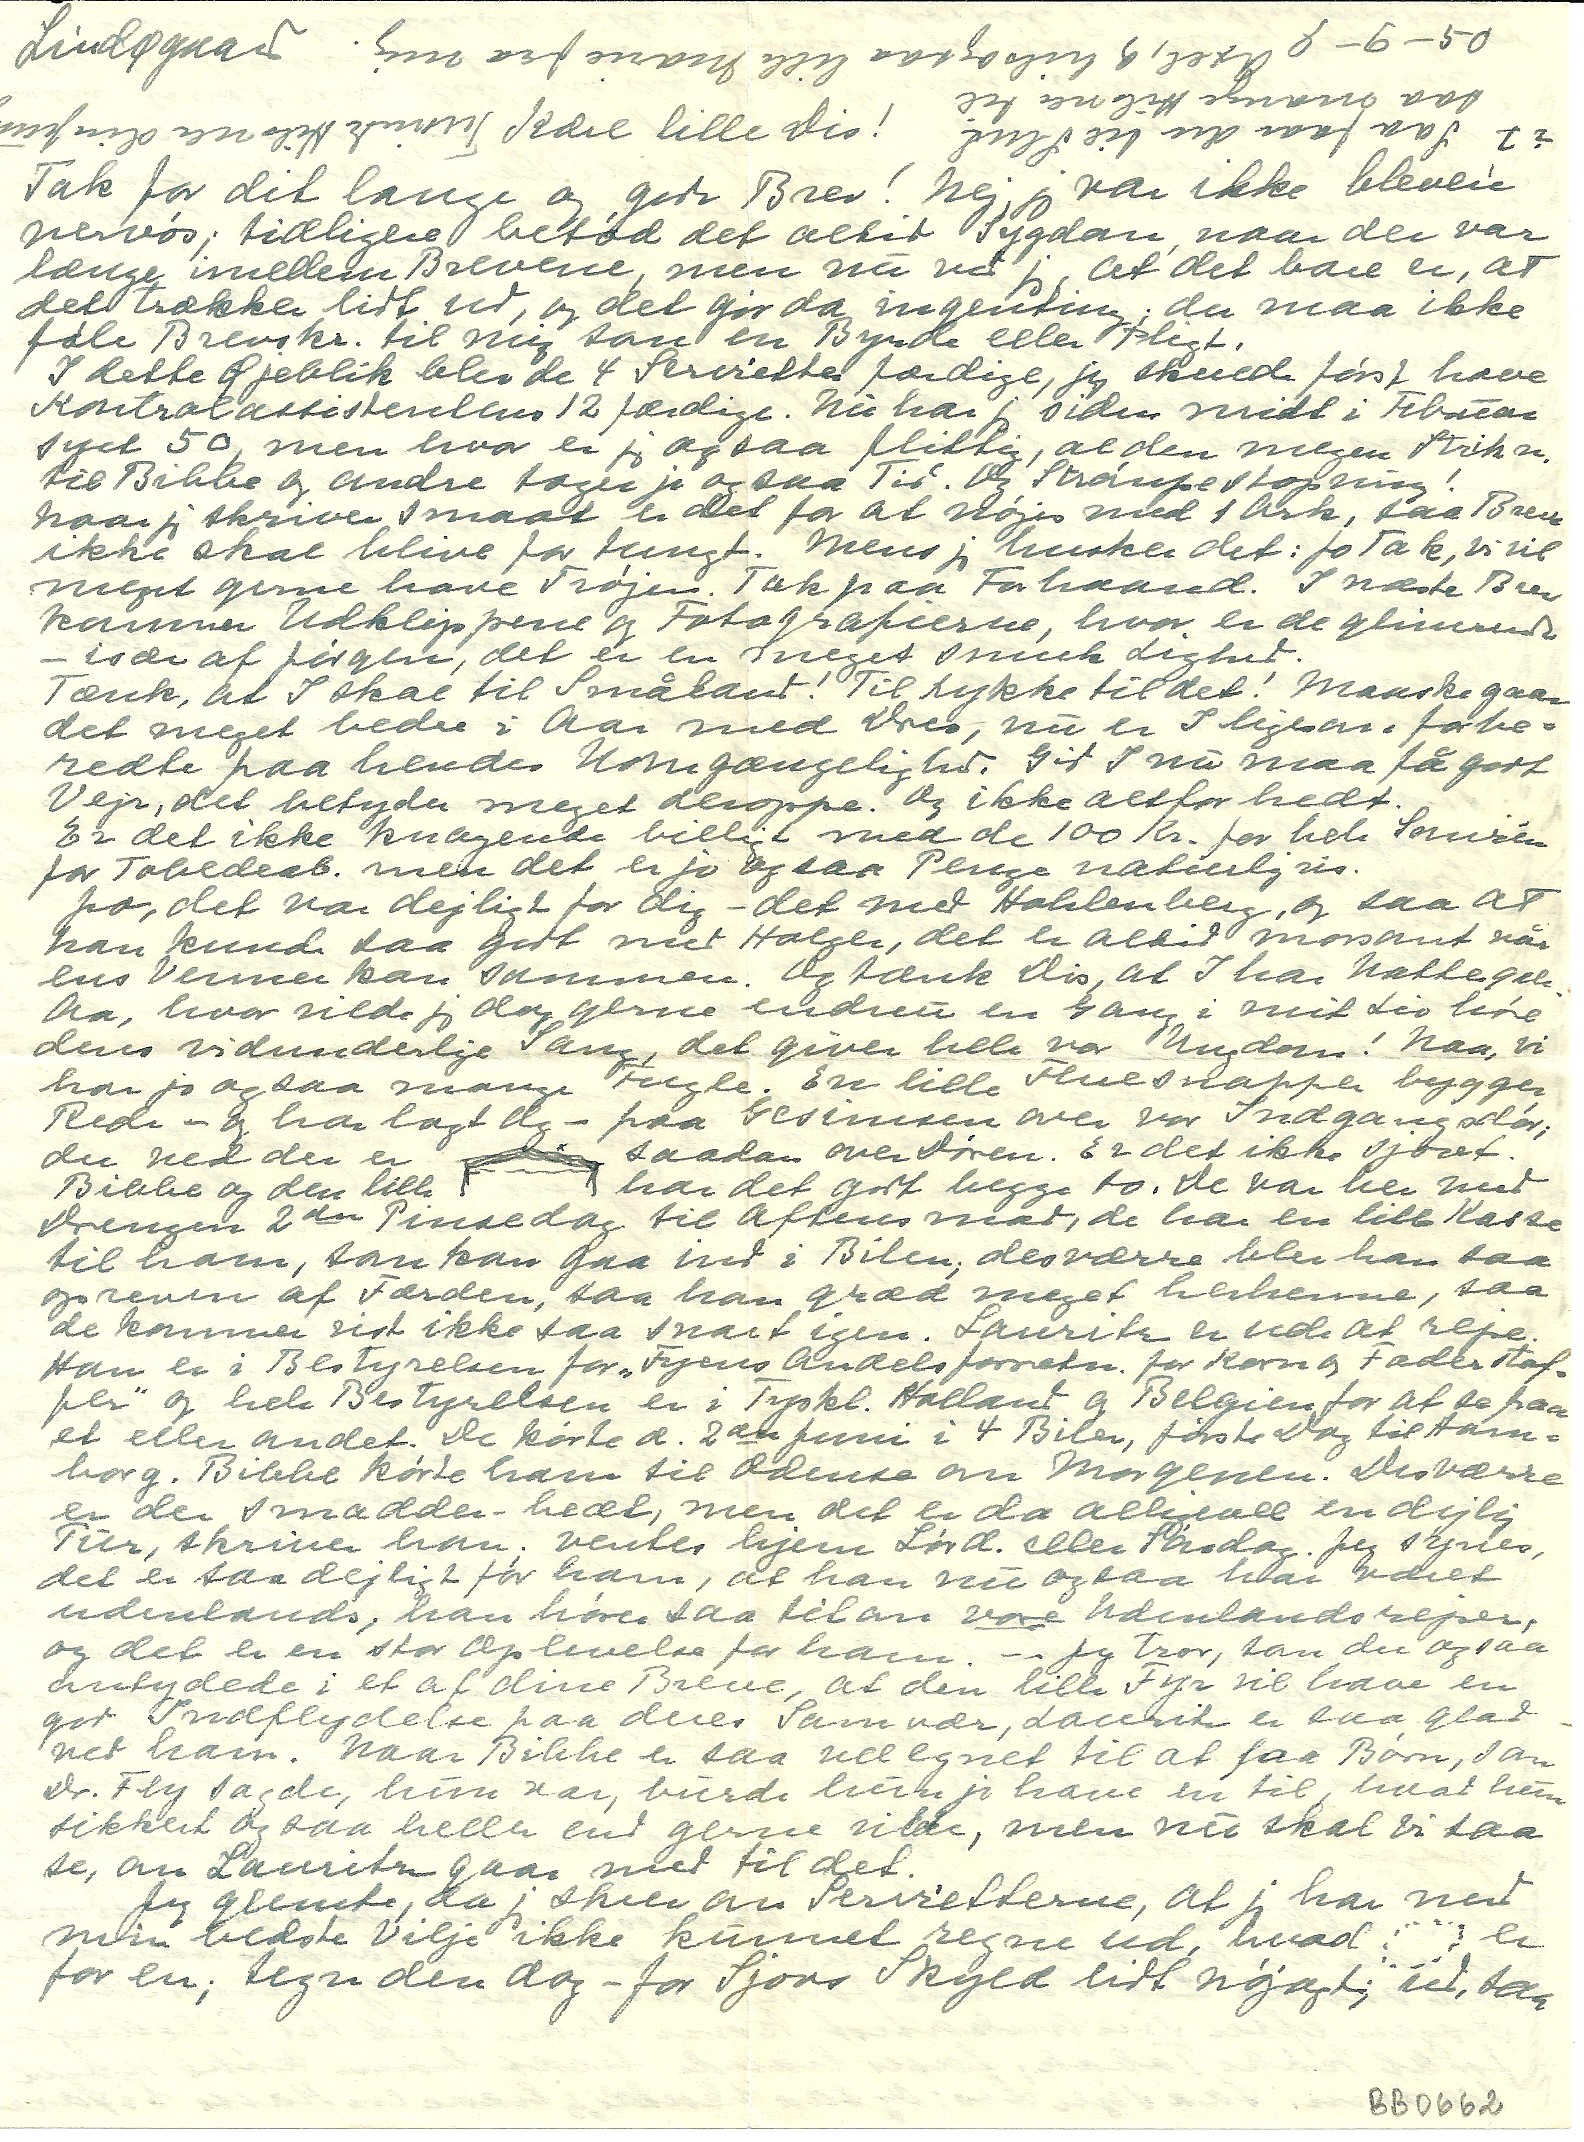 Lindøgaard
8-6-50
Kære lille Dis!
Tak for dit lange og gode Brev! Nej, jeg var ikke bleven
nervøs; tidligere betød det altid Sygdom, naar der var
længe imellem Brevene, men nu ved j, at det bare er, at
det trækker lidt ud, og det gør da ingenting; du maa ikke
føle Brevskr. til mig som en Byrde eller Pligt.
I dette Øjeblik blev de 4 Servietter færdige, jeg skulde først have
Kontrolassistentens 12 færdige. Nu har j siden midt i Februar
syet 50, men hvor er j ogsaa flittig, al den megen Strikn.
til Bibbe og andre tager jo ogsaa Tid. Og Strømpestopning!
Naar j skriver smaat er det for at nøjes med 1 Ark, saa Brevet
ikke skal blive for tungt. Mens j husker det: Jo Tak, vi vil
meget gerne have Trøjen. Tak paa Forhaand. I næste Brev
kommer Udklippene og Fotografierne, hvor er de glimrende
– især af Jørgen, det er en meget smuk Lighed.
Tænk, at I skal til Småland! Til Lykke til det! Maaske gaar
det meget bedre i Aar med Dres, nu er I ligesom forbe-
redte paa hendes Uomgængelighed. Gid I nu maa få godt
Vejr, det betyder meget deroppe. Og ikke altfor hedt.
Er det ikke knagende billigt med de 100 Kr. for hele Somren
for Tobedesb. men det er jo ogsaa Penge naturligvis.
Jo, det var dejligt for dig – det med Hohlenberg, og saa at
han kunde saa godt med Holger, det er altid morsomt når
ens Venner kan sammen. Og tænk Dis, at I har Nattergale.
Aa, hvor vilde j dog gerne endnu en Gang i mit Liv høre
deres vidunderlige Sang, det giver hele vor Ungdom! Naa, vi
har jo ogsaa mange Fugle. En lille Fluesnapper bygger
Rede – og har lagt Æg – paa Gesimsen over vor Indgangsdør;
du ved der er saadan over Døren. Er det ikke sjovt.
Bibbe og den lille har det godt begge to. De var her med
Drengen 2den Pinsedag til Aftensmad, de har en lille Kasse
til ham, som kan gaa ind i Bilen, desværre blev han saa
opreven af Færden, saa han græd meget herhenne, saa
de kommer vist ikke saa snart igen. Lauritz er ude at rejse.
Han er i Bestyrelsen for „Fyens Andelsforretn. for Korn og Foderstof-
fer" og hele Bestyrelsen er i Tyskl. Holland og Belgien for at se paa
et eller andet. De kørte d. 2den Juni i 4 Biler, første Dag til Ham-
borg. Bibbe kørte ham til Odense om Morgenen. Desværre
er der smadder-hedt, men det er da alligevel en dejlig
Tur, skriver han. ventes hjem Lørd. eller Søndag. Jeg synes,
det er saa dejligt for ham, at han nu ogsaa har været
udenlands, han hører saa til om vore Udenlandsrejser,
og det er en stor Oplevelse for ham. – Jeg tror, som du ogsaa
antydede i et af dine Breve, at den lille Fyr vil have en
god Indflydelse paa deres Samvær, Lauritz er saa glad
ved ham. Naar Bibbe er saa velegnet til at faa Børn, som
Dr. Fly sagde, hun var, burde hun jo have en til, hvad hun
sikkert ogsaa heller end gerne vilde, men nu skal vi saa
se, om Lauritz gaar med til det.
Jeg glemte, da j skrev om Servietterne, at j har med
min bedste Vilje ikke kunnet regne ud, hvad er
for en; tegn den dog – for Sjovs Skyld lidt nøjagtig ud, saa
Saa faar du til Slut
saa mange Hilsner til
Axel, og hils ogsaa lille Marie fra mig.
Tusinde Hilsner din Junge
BB0662